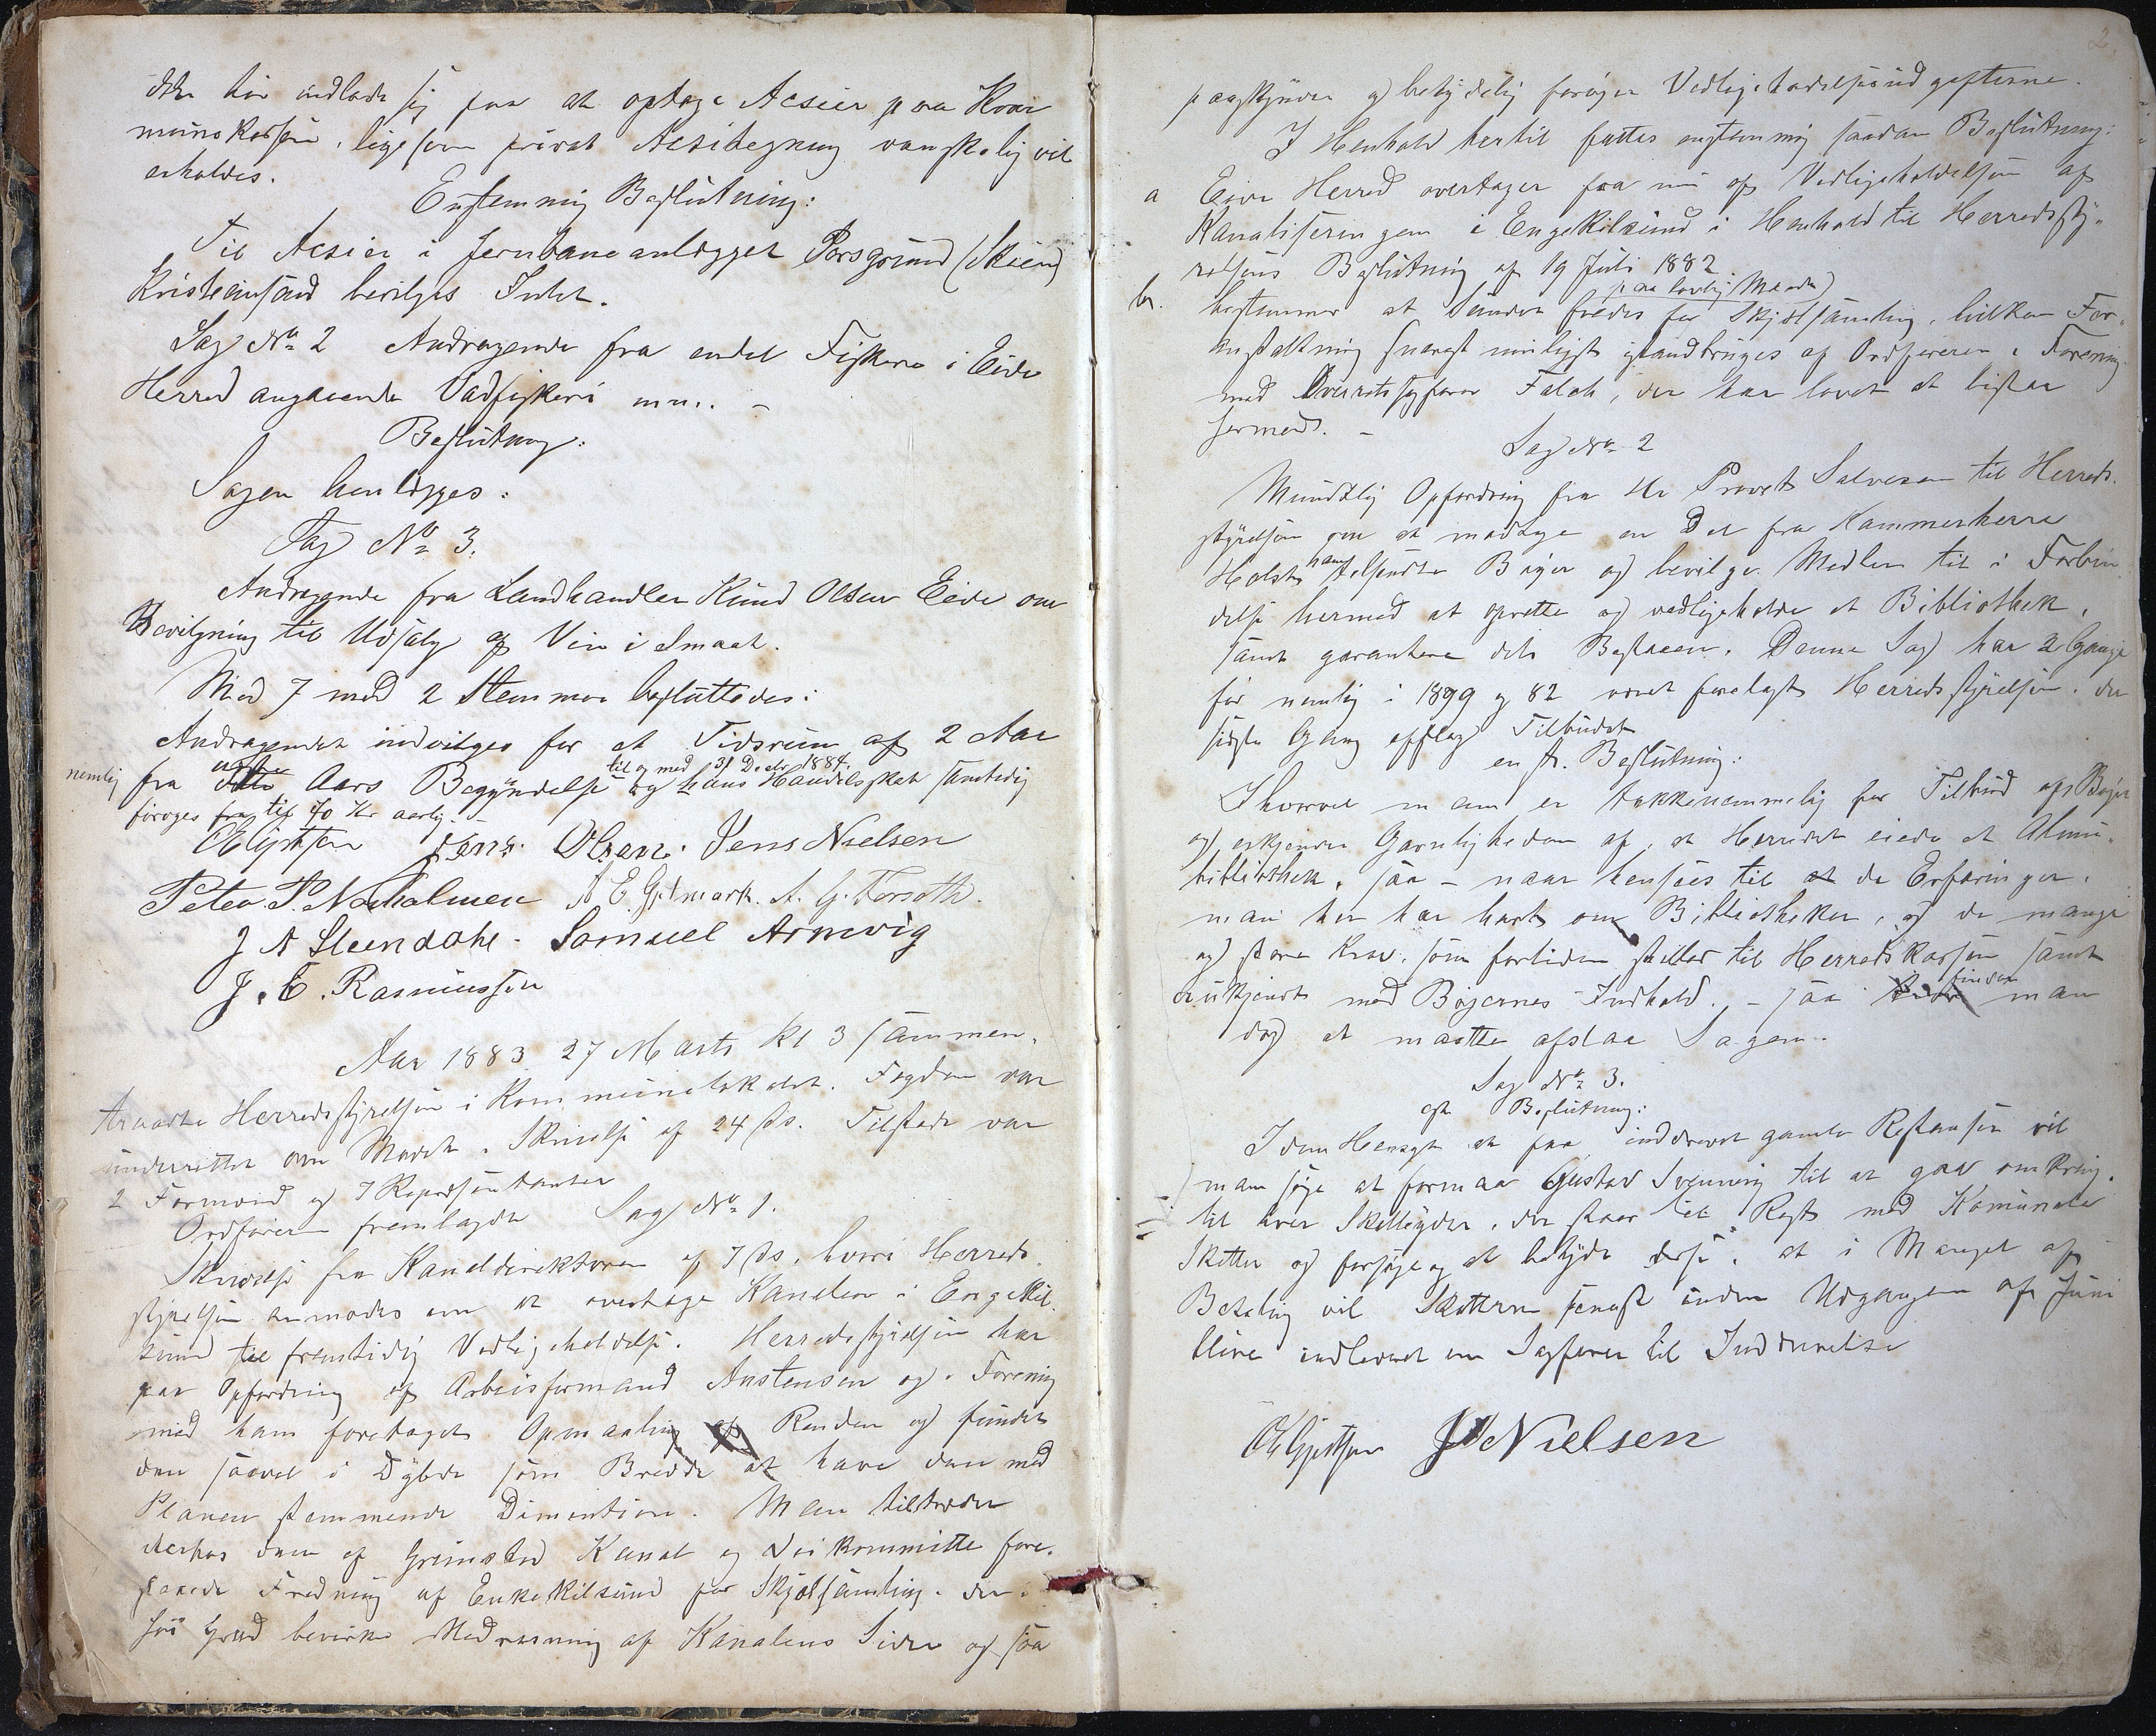 ikke bør indlade sig paa at optage Acsier paa Kom
munekassen, ligesom privat Acsitegning vanskelig vil
erholdes.
Enstemmig Beslutning:
Til Acsier i Jernbaneanlægget Porsgrund (Skien)
Kristiansand beviliges Intet.
Sag No 2 Andragende fra endel Fiskere i Eide
Herred angaaende Vadfiskeri m.m. –
Beslutning:
Sagen henlægges:
Sag No 3.
Andragende fra Landhandler Knud Olsen Eide om
Bevilgning til Udsalg af Vin i Smaat.
Med 7 mod 2 Stemmer besluttedes:
Andragendet indvilges for et Tidsrum af 2 Aar
nemlig fra dette Aars Begyndelse til og med 31 Decbr 1884. og hans Handelsskat samtidig
forøges fra til 70 Kr aarlig. –
Jens Olsen. Jens Nielsen
Peter P. Narholmen A E Grefmark. A. G. Torsoth.
J N Steendahl. Samuel Arnevig
J. C. Rasmussen
Aar 1883 27 Marts Kl 3 sammen-
traadte Herredsstyrelsen i Kommunelokalet. Fogden var
underrettet om Mødet i Skrivelse af 24 ds. Tilstede var
2 Formænd og 7 Repræsentanter
Ordføreren fremlagde Sag No 1.
Skrivelse fra Kanaldirektøren af 7 ds, hvori Herreds-
styrelsen anmodes om at overtage Kanalen i Engekil-
sund til fremtidig Vedligeholdelse. Herredsstyrelsen har
paa Opfordring af Arbeidsformand Anstensen og i Forening
med ham foretaget Opmaaling af Renden og fundet
den saavel i Dybde som Bredde at have den med
Planen stemmende Dimention. Man tiltræder
derhos den af Grimstad Kanal og Veikommitte fore-
slaaede Fredning af Enkekilsund for Skjælsamling, der i
høi Grad bevirker Nedrasning af Kanalens Sider og saa
2.
paaskynder og betydelig forøger Vedligeholdelsesudgifterne.
I Henhold hertil fattes enstemmig saadan Beslutning:
a Eide Herred overtager fra nu af Vedligeholdelsen af
Kanaliseringen i Engekilsund i Henhold til Herredssty-
relsens Beslutning af 19 Juli 1882
b. bestemmer at Sundet fredes paa lovlig Maade for Skjælsamling, hvilken For-
anstaltning snarest muligst iværkbringes af Ordføreren i Forening
med Overretssagfører Falch, der har lovet at bistaa
hermed. –
Sag No 2
Mundtlig Opfordring fra Hr Provst Salvesen til Herreds-
styrelsen om at modtage en Del fra Kammerherre
Holst ham tilsendte Bøger og bevilge Midler til i Forbin-
delse hermed at oprette og vedligeholde et Bibliothek,
samt garantere dets Bestaaen. Denne Sag har 2 Gange
før nemlig i 1899 og 82 været forelagt Herredsstyrelsen, der
sidste Gang afslog Tilbudet
enst. Beslutning:
Ihvorvel man er takknemmelig for Tilbud af Bøger
og erkjender Gavnligheden af, at Herredet eiede et Almu-
bibliothek, saa – naar hensees til de Erfaringer,
man her har havt om Bibliotheker, og de mange
og store Krav, som fortiden stilles til Herredskassen samt
er ukjendt med Bøgernes Indhold. – saa finder man
dog at maatte afslaa Sagen.
Sag No 3.
enst Beslutning:
I den Hensigt at faa inddrevet gamle Restanser vil
man søge at formaa Gustav Svenning til at gaa omkring
til hver Skatteyder, der staar til Rest med Komunale
Skatter og forsøge og at betyde disse, at i Mangel af
Betaling vil Skatterne senest inden Udgangen af Juni
blive indleveret en Sagfører til Inddrivelse
J Nielsen